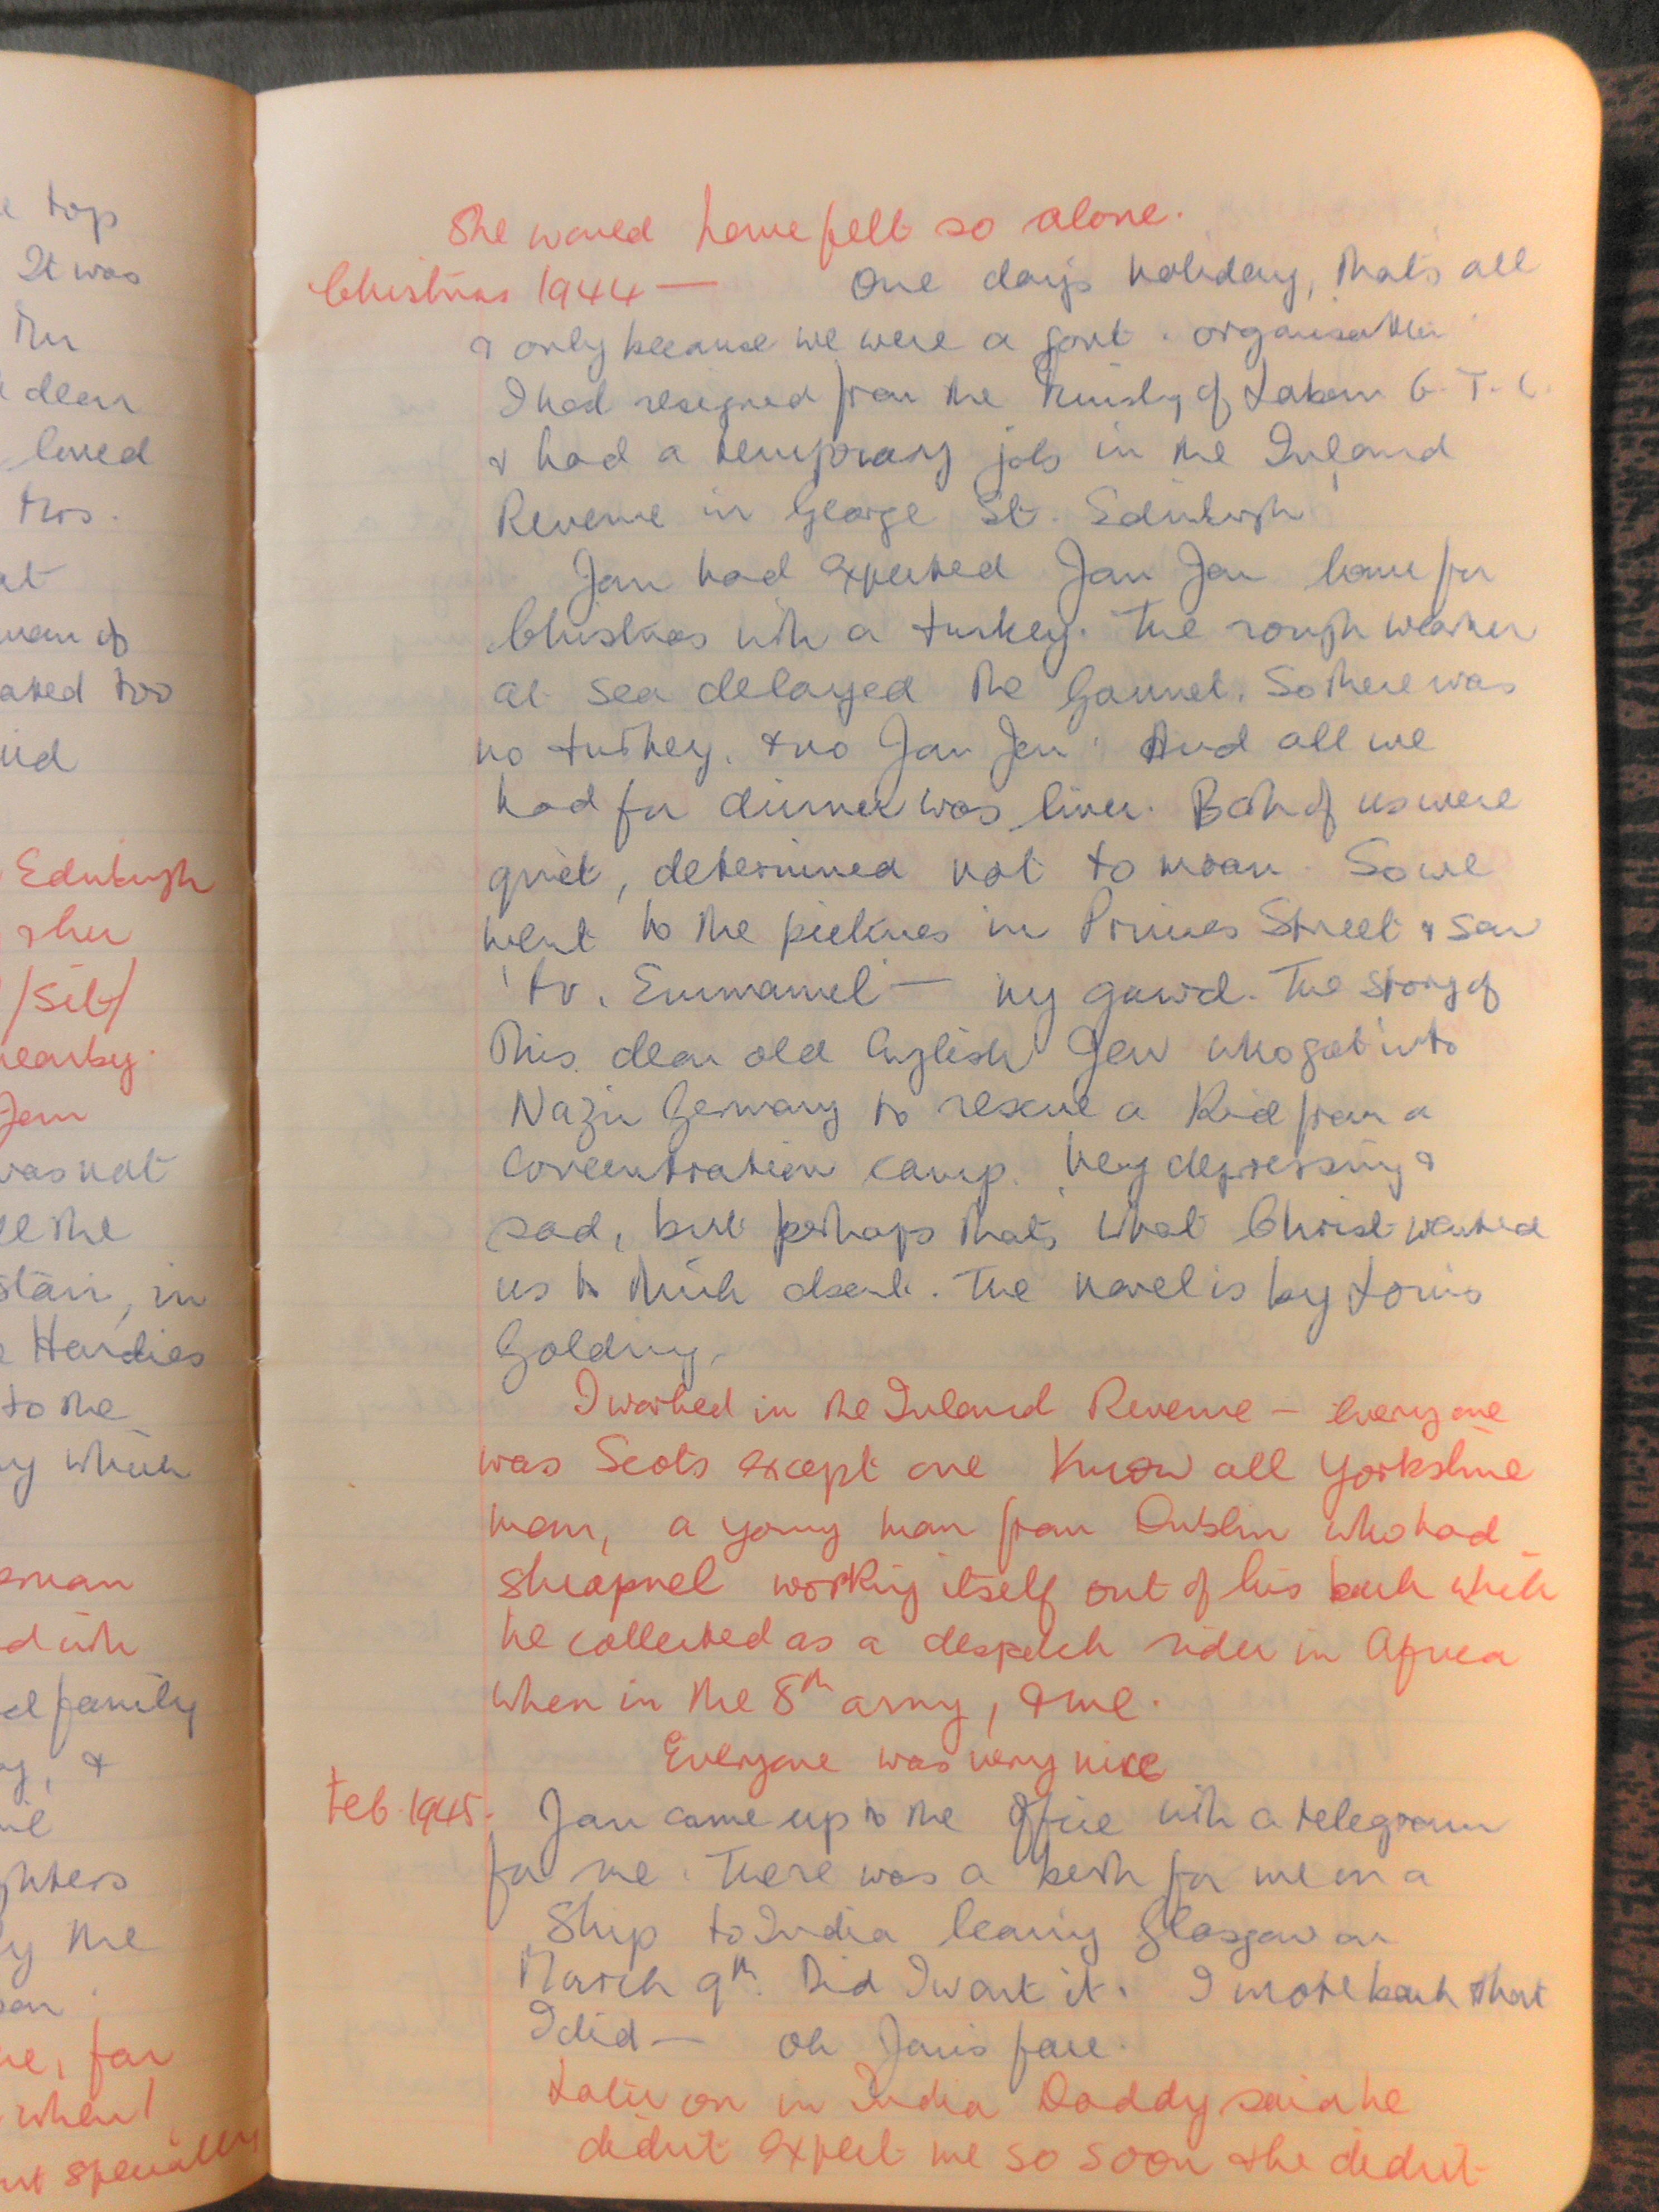 e top
It was
the
dear
loved
this.
at
man of
ated too
Edinburgh
& her
/Silt/
nearby.
Jan
was not
ll the
stair, in
Hardies
to the
y which
d with
d family
y, &
ghters
y the
re, far
when I
nt specially
She would have felt so alone.
Christmas 1944 — One day's holiday, that's all
& only because we were a govt. organisation
I had resigned from the Ministry of Labour G.T.C.
& had a temporary job in the Inland
Revenue in George St. Edinburgh
Jan had expected Jan Jan home for
Christmas with a turkey. The rough weather
at sea delayed the Gannet. So there was
no turkey, & no Jan Jan. And all we
had for dinner was liver. Both of us were
quiet, determined not to moan. So we
went to the pictures in Princes Street & saw
'Mr. Emmanuel — my gawd. The story of
this dear old English Jew who got into
Nazi Germany to rescue a kid from a
Concentration camp. Very depressing &
sad, but perhaps that's what Christ wanted
us to think about. The novel is by Louis
Golding.
I worked in the Inland Revenue — everyone
was Scots except one know all Yorkshire
man, a young man from Dublin who had
shrapnel working itself out of his back which
he collected as a despatch rider in Africa
when in the 8th army, & me.
Everyone was very nice
Feb. 1945. Jan came up to the office with a telegram
for me. There was a berth for me on a
Ship to India leaving Glasgow on
March 9th. Did I want it. I wrote back that
I did — oh Jan's face.
Later on in India Daddy said he
didn't expect me so soon & he didn't